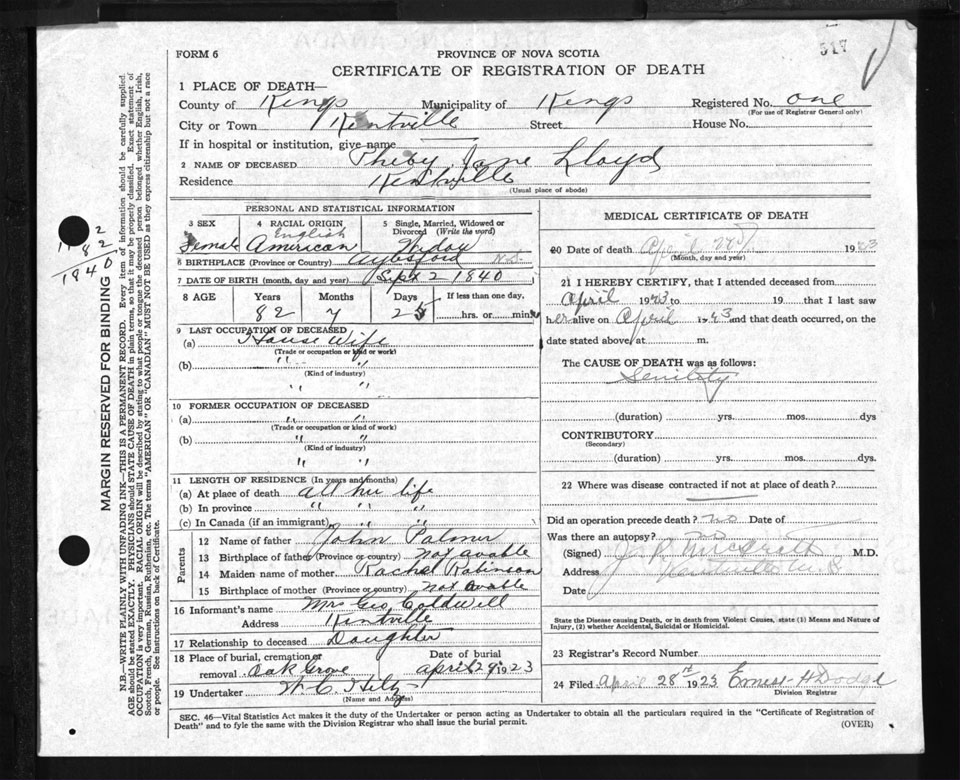 FORM 6
PROVINCE OF NOVA SCOTIA
517
CERTIFICATE OF REGISTRATION OF DEATH
1 PLACE OF DEATH—
County of Kings Municipality of Kings Registered No. one
(For use of Registrar General only)
City or Town Kentville Street House No.
If in hospital or institution, give name
2 NAME OF DECEASED Pheby Jane Lloyd
Residence Kentville
(Usual place of abode)
PERSONAL AND STATISTICAL INFORMATION
3 SEX 4 RACIAL ORIGIN 5 Single, Married, Widowed or Divorced (Write the word)
English
Female American Widow
6 BIRTHPLACE (Province or Country) Aylesford N.S.
7 DATE OF BIRTH (month, day and year) Sept 2 1840
8 AGE Years Months Days If less than one day,
82 7 25 hrs. or mins
9 LAST OCCUPATION OF DECEASED
(a) House Wife
(Trade or occupation or kind or work)
(b) " "
(Kind of industry)
" "
10 FORMER OCCUPATION OF DECEASED
(a) " "
(Trade or occupation or kind of work)
(b) " "
(Kind of industry)
" "
11 LENGTH OF RESIDENCE (In years and months)
(a) At place of death all her life
(b) In province " " "
(c) In Canada (if an immigrant) " " "
Parents
12 Name of father John Palmer
13 Birthplace of father (Province or country) not avable
14 Maiden name of mother Rachel Robinson
15 Birthplace of mother (Province or country) not avable
16 Informant's name Mrs Geo Coldwell
Address Kentville
17 Relationship to deceased Daughter
18 Place of burial, cremation or removal Oak Grove Date of burial April 29 1923
19 Undertaker
(Name and Address)
MEDICAL CERTIFICATE OF DEATH
20 Date of death April 1923
(Month, day and year)
21 I HEREBY CERTIFY, that I attended deceased from
April 1923 to 19 that I last saw
her alive on April 1923 and that death occurred, on the
date stated above, at m.
The CAUSE OF DEATH was as follows:
Senility
(duration) yrs. mos. dys
CONTRIBUTORY
(Secondary)
(duration) yrs. mos. dys.
22 Where was disease contracted if not at place of death?
Did an operation precede death? no Date of
Was there an autopsy? no
(Signed) M.D.
Address Kentville N.S.
Date
State the Disease causing Death, or in death from Violent Causes, state (1) Means and Nature of
Injury, (2) whether Accidental, Suicidal or Homicidal.
23 Registrar's Record Number
24 Filed April 28 1923 Ernest H Dodge
Division Registrar
SEC. 46—Vital Statistics Act makes it the duty of the Undertaker or person acting as Undertaker to obtain all the particulars required in the "Certificate of Registration of
Death" and to fyle the same with the Division Registrar who shall issue the burial permit.
(OVER)
MARGIN RESERVED FOR BINDING
N.B.—WRITE PLAINLY WITH UNFADING INK—THIS IS A PERMANENT RECORD. Every item of information should be carefully supplied.
AGE should be stated EXACTLY. PHYSICIANS should STATE CAUSE OF DEATH in plain terms, that it may be properly classified. Exact statement of
OCCUPATION is very important. RACIAL ORIGIN will be described by stating to what people or tongue the deceased person belonged whether English, Irish,
Scotch, French, German, Russian, Ruthenian, etc. The terms "AMERICAN" OR "CANADIAN" MUST NOT BE USED as they express citizenship but not a race
or people. See instructions on back of Certificate.
82
1840